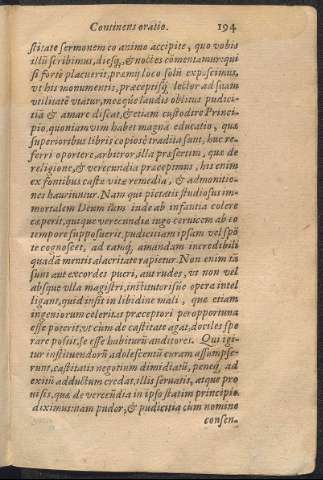 Continens oratio. 194
stitate sermonem eo animo accipite, quo vobis
illū scribimus, diesq́;, & noctes comentamur: qui
si fortè placuerit, præmij loco solū exposcimus,
vt his monumentis, præceptisq́; lector ad suam
vtilitatē vtatur, meæq́ue laudis oblitus pudici-
tiā & amare discat, & etiam custodire Princi-
pio, quoniam vim habet magnā educatio, quæ
superioribus libris copiosè tradita sunt, huc re-
ferri oportere, arbitror, illa præsertim, quæ de
religione, & verecundia præcepimus, his enim
ex fontibus castæ vitæ remedia, & admonitio-
nes hauriuntur. Nam qui pietatis studiosus im-
mortalem Deum iam inde ab infantia colere
cœperit, quique verecundiæ iugo ceruicem ab eo
tempore supposuerit, pudicitiam ipsam vel spō
te cognoscet, ad eamq́; amandam incredibili
quadā mentis alacritate rapietur. Non enim tā
sunt aut excordes pueri, aut rudes, vt non vel
absque vlla magistri, institutorisue opera intel
ligant, quid insit in libidine mali, quæ etiam
ingeniorum celeritas præceptori peropportuna
esse poterit, vt cùm de castitate agat, dociles spe
rare possit, se esse habiturū auditores. Qui igi-
tur instituendorū adolescentū curam assumpse-
runt, castitatis negotium dimidiatū, peneq́; ad
exitū adductum credat, illis seruatis, atque pro
uisis, quæ de verecūdia in ipso statim principio
diximus: nam pudor, & pudicitia cùm nomine
consen-